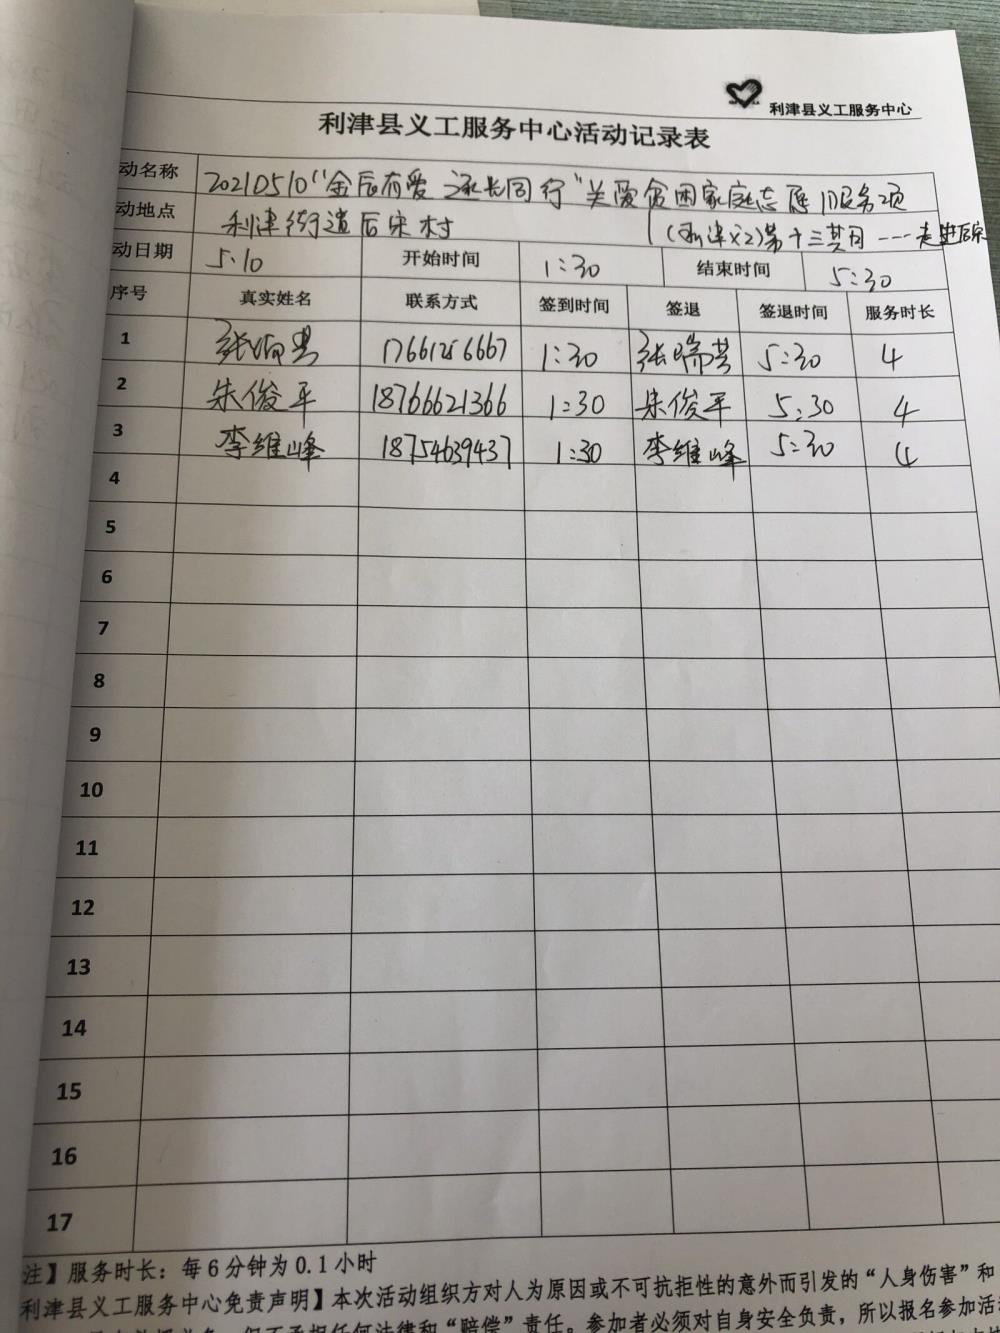 利津县义工服务中心
利津县义工服务中心活动记录表
动名称 20210510“金辰有爱 逐长同行”关爱贫困家庭志愿服务项
动地点 利津街道后宋村 (利津义工)第十三其月 ---走进后宋
动日期 5.10 开始时间 1:30 结束时间 5:30
序号 真实姓名 联系方式 签到时间 签退 签退时间 服务时长
1 张 17661256667 1:30 张瑞芸 5:30 4
2 朱俊平 18766621366 1:30 朱俊平 5:30 4
3 李维峰 18754639437 1:30 李维峰 5:30 4
4
5
6
7
8
9
10
11
12
13
14
15
16
17
注】服务时长：每6分钟为0.1小时
利津县义工服务中心免责声明】本次活动组织方对人为原因或不可抗拒性的意外而引发的“人身伤害”和
但不承担任何法律和“赔偿”责任。参加者必须对自身安全负责，所以报名参加活